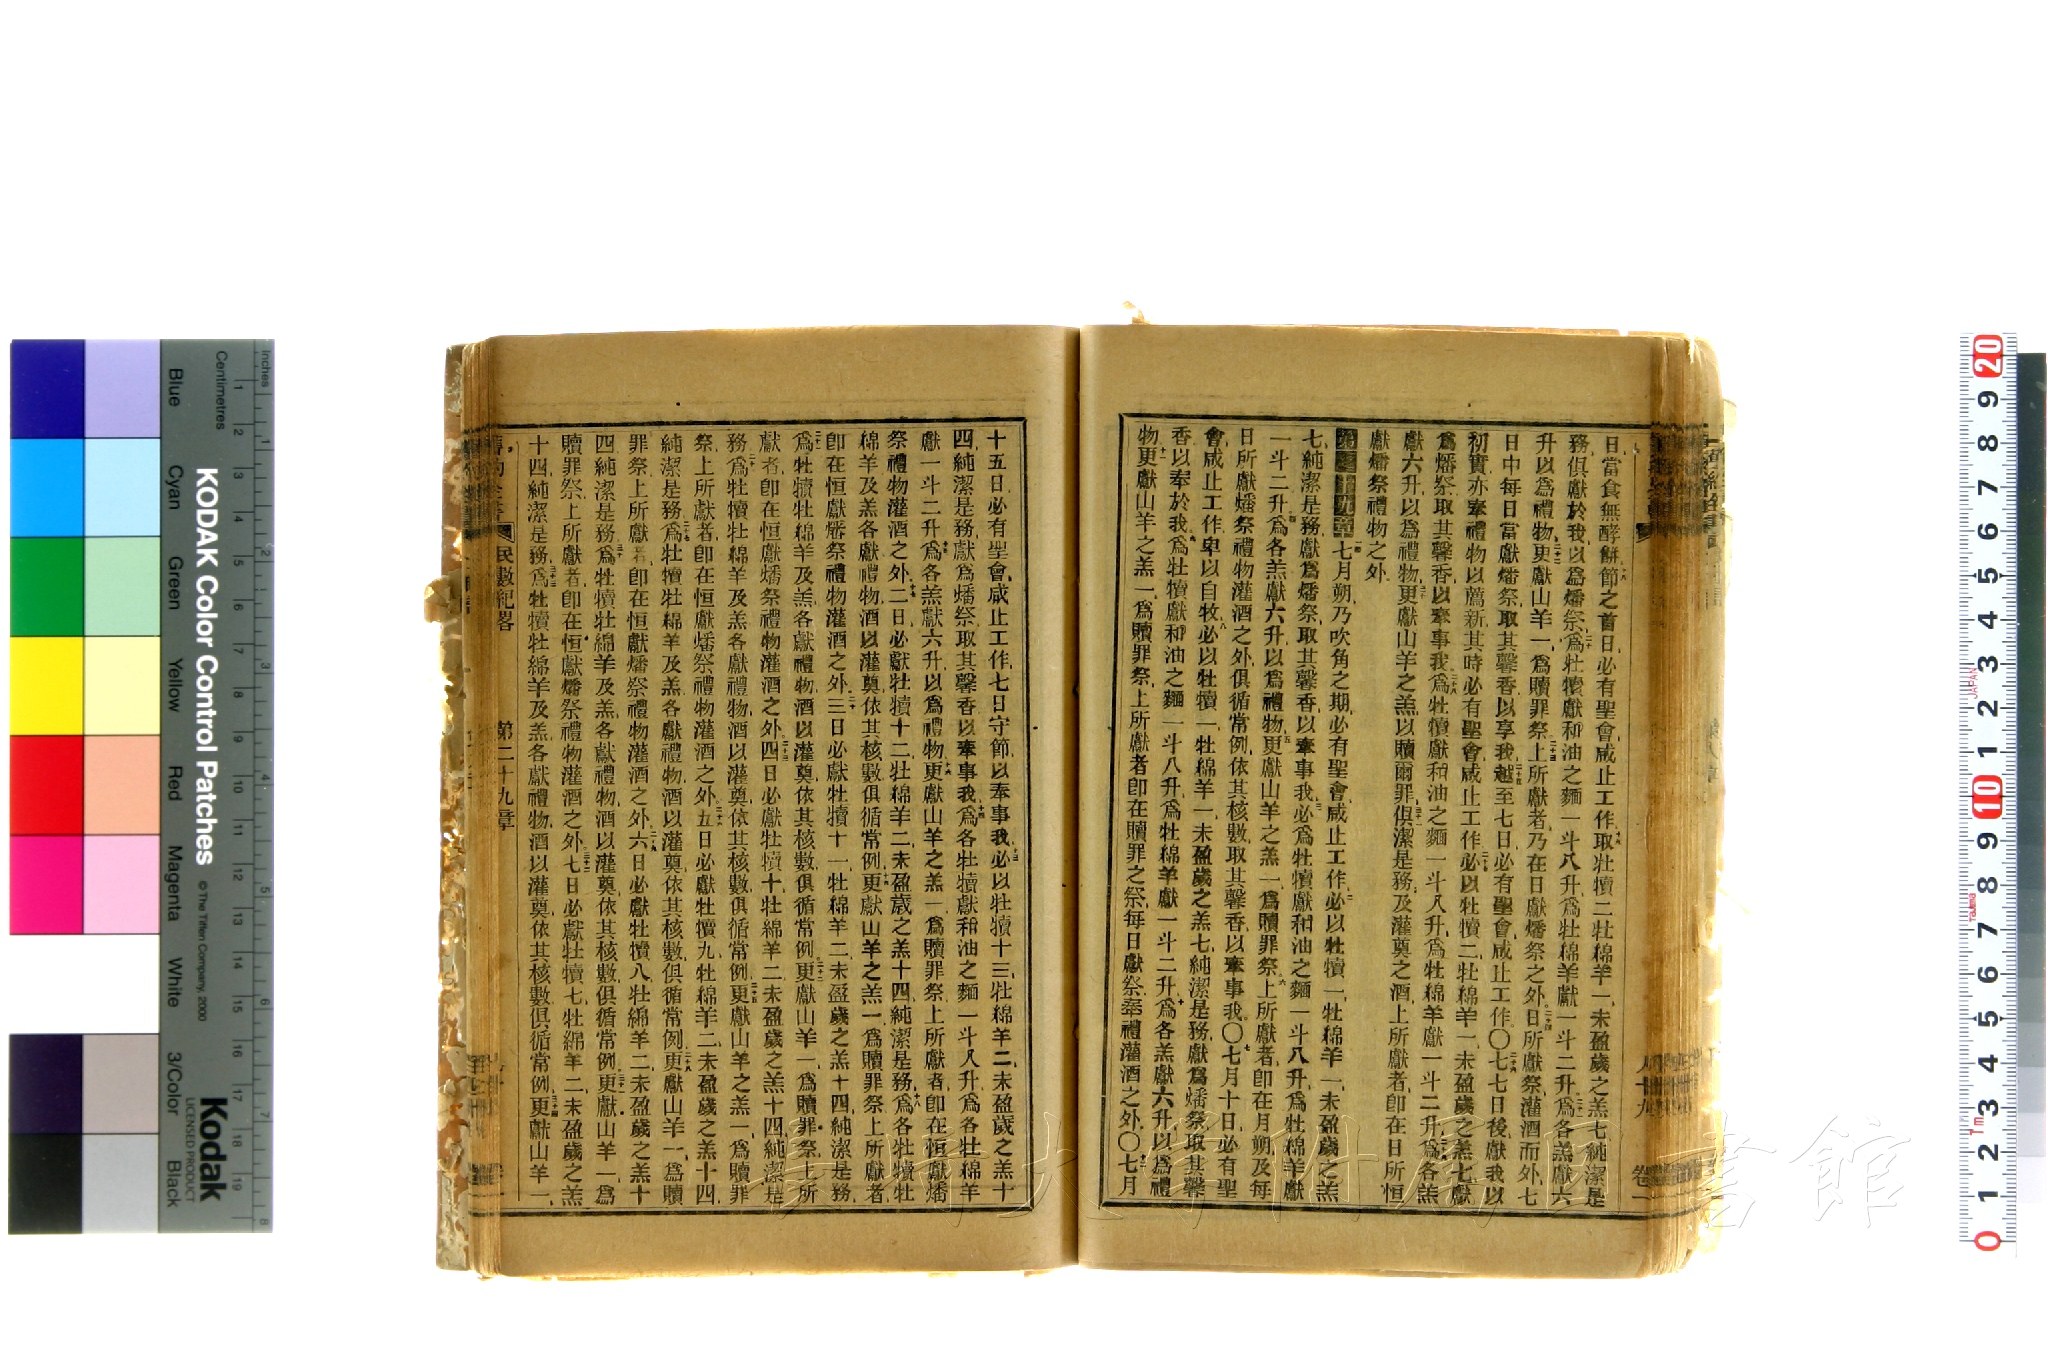 日當食無酵餅節之首日必有聖會咸止工作取牡犢二牡綿羊一未盈歲之羔七純潔是
務俱獻於我以爲燔祭爲牡犢獻和油之麵一斗八升爲牡綿羊獻一斗二升爲各羔獻六
升以爲禮物更獻山羊一爲贖罪祭上所獻者乃在日獻燔祭之外日所獻祭灌酒而外七
日中每日當獻燔祭取其馨香以享我越至七日必有聖會咸止工作〇七七日後獻我以
初實亦奉禮物以薦新其時必有聖會咸止工作必以牡犢二牡綿羊一未盈歲之羔七獻
爲燔祭取其馨香以奉事我爲牡犢獻和油之麵一斗八升爲牡綿羊獻一斗二升爲各羔
獻六升以爲禮物更獻山羊之羔以贖爾罪俱潔是務及灌奠之酒上所獻者卽在日所恒
獻燔祭禮物之外
第二十九章七月朔乃吹角之期必有聖會咸止工作必以牡犢一牡綿羊一未盈歲之羔
七純潔是務獻爲燔祭取其馨香以奉事我必爲牡犢獻和油之麵一斗八升爲牡綿羊獻
一斗二升爲各羔獻六升以爲禮物更獻山羊之羔一爲贖罪祭上所獻者卽在月朔及每
日所獻燔祭禮物灌酒之外俱循常例依其核數取其馨香以奉事我〇七月十日必有聖
會咸止工作卑以自牧必以牡犢一牡綿羊一未盈歲之羔七純潔是務獻爲燔祭取其馨
香以奉於我爲牡犢獻和油之麵一斗八升爲牡綿羊獻一斗二升爲各羔獻六升以爲禮
物更獻山羊之羔一爲贖罪祭上所獻者卽在贖罪之祭每日獻祭奉禮灌酒之外〇七月
十五日必有聖會咸止工作七日守節以奉事我必以牡犢十三牡綿羊二未盈歲之羔十
四純潔是務獻爲燔祭取其馨香以奉事我爲各牡犢獻和油之麵一斗八升爲各牡綿羊
獻一斗二升爲各羔獻六升以爲禮物更獻山羊之羔一爲贖罪祭上所獻者卽在恒獻燔
祭禮物灌酒之外二日必獻牡犢十二牡綿羊二未盈歲之羔十四純潔是務爲各牡犢牡
綿羊及羔各獻禮物酒以灌奠依其核數俱循常例更獻山羊之羔一爲贖罪祭上所獻者
卽在恒獻燔祭禮物灌酒之外三日必獻牡犢十一牡綿羊二未盈歲之羔十四純潔是務
爲牡犢牡綿羊及羔各獻禮物酒以灌奠依其核數俱循常例更獻山羊一爲贖罪祭上所
獻者卽在恒獻燔祭禮物灌酒之外四日必獻牡犢十牡綿羊二未盈歲之羔十四純潔是
務爲牡犢牡綿羊及羔各獻禮物酒以灌奠依其核數俱循常例更獻山羊之羔一爲贖罪
祭上所獻者卽在恒獻燔祭禮物灌酒之外五日必獻牡犢九牡綿羊二未盈歲之羔十四
純潔是務爲牡犢牡綿羊及羔各獻禮物酒以灌奠依其核數俱循常例更獻山羊一爲贖
罪祭上所獻者卽在恒獻燔祭禮物灌酒之外六日必獻牡犢八牡綿羊二未盈歲之羔十
四純潔是務爲牡犢牡綿羊及羔各獻禮物酒以灌奠依其核數俱循常例更獻山羊一爲
贖罪祭上所獻者卽在恒獻燔祭禮物灌酒之外七日必獻牡犢七牡綿羊二未盈歲之羔
十四純潔是務爲牡犢牡綿羊及羔各獻禮物酒以灌奠依其核數俱循常例更獻山羊一
舊約全書 民數紀畧 第二十九章
KODAK Color Control Patches
© The Tiffen Company, 2000
Kodak
LICENSED PRODUCT
Inches
Centimetres
Blue
Cyan
Green
Yellow
Red
Magenta
White
3/Color
Black
JAPAN
Tajima
1m